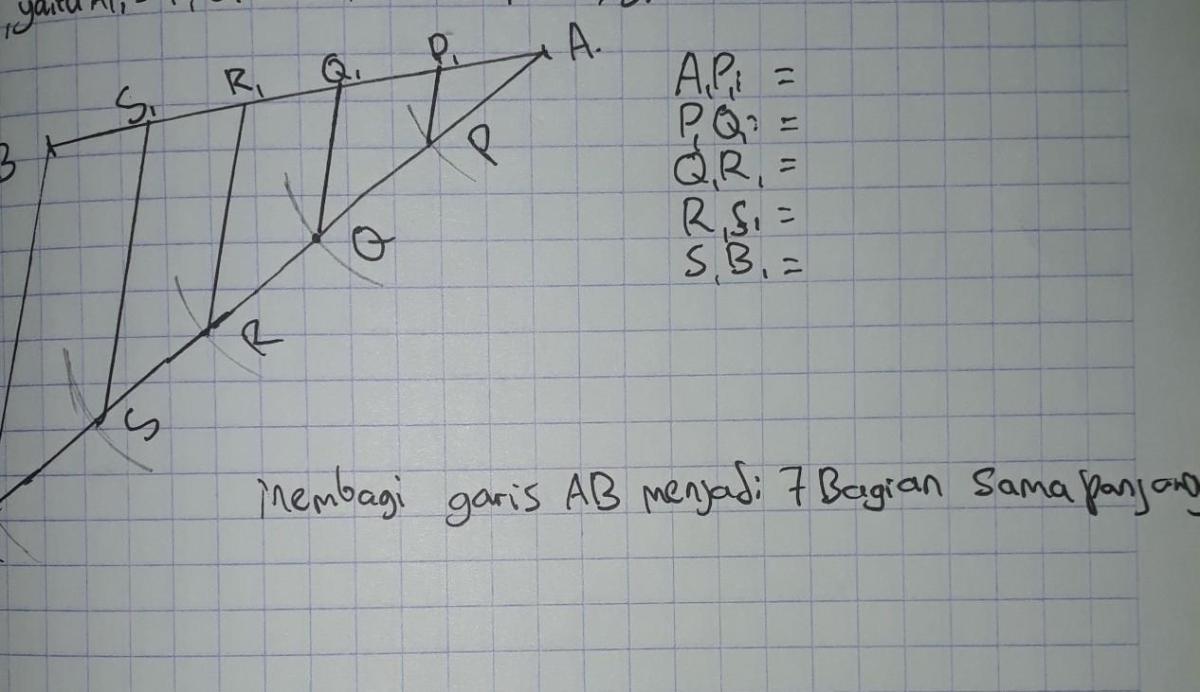 yaitu
P₁ A.
Q₁
R₁
S₁
B
P
Q
R
S
A₁P₁ =
P₁Q₁ =
Q₁R₁ =
R₁S₁ =
S₁B₁ =
membagi garis AB menjadi 7 Bagian Sama panjang